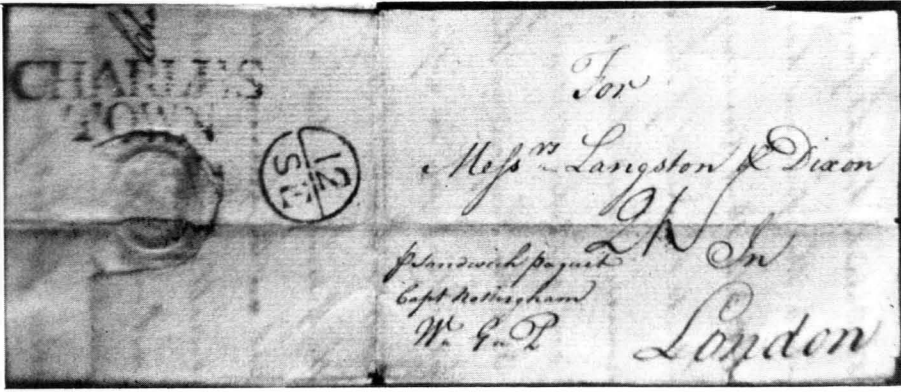 CHARLES
TOWN
12
SE
For
Messrs Langston & Dixon
2/
In
P Sandwich Paquet
Capt Nottingham
W. G. P
London